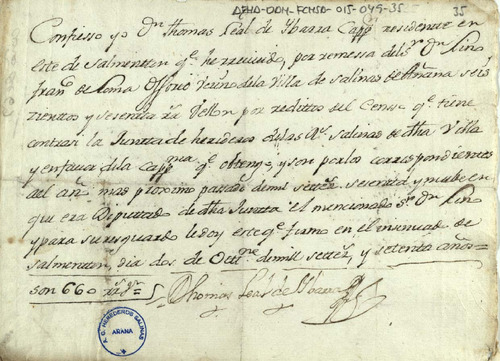 APHA-DDH-FCHSD-015-049-35
35
Confieso yo Dn Thomas Leal de Ybarra Capp.n residente en
este de Salmenton qe. he recivido, por remessa del Sr. Dn Lino
Franco. de Loma Ossorio Vecino dela Villa de Salinas de Añana seis
zientos y sesenta rs Vellon por redittos del Censo qe. tiene
contra si la Juntta de herederos delas Rs. Salinas de dha Villa
y enfavor dela Cappnia qe. obtengo, y son por los correspondientes
al año mas proximo passado demil settes. sesenta y nuebe en
que era Diputtado de dha Juntta el mencionado Sr. Dn Lino
y para su resguardo le doy este qe. firmo en el mencionado
Salmenton, dia dos de Octtre. demil settes. y setenta años
son 660 rs Vn
Thomas Leal de Ybarra
A. C. HEREDEROS SALINAS
ARANA